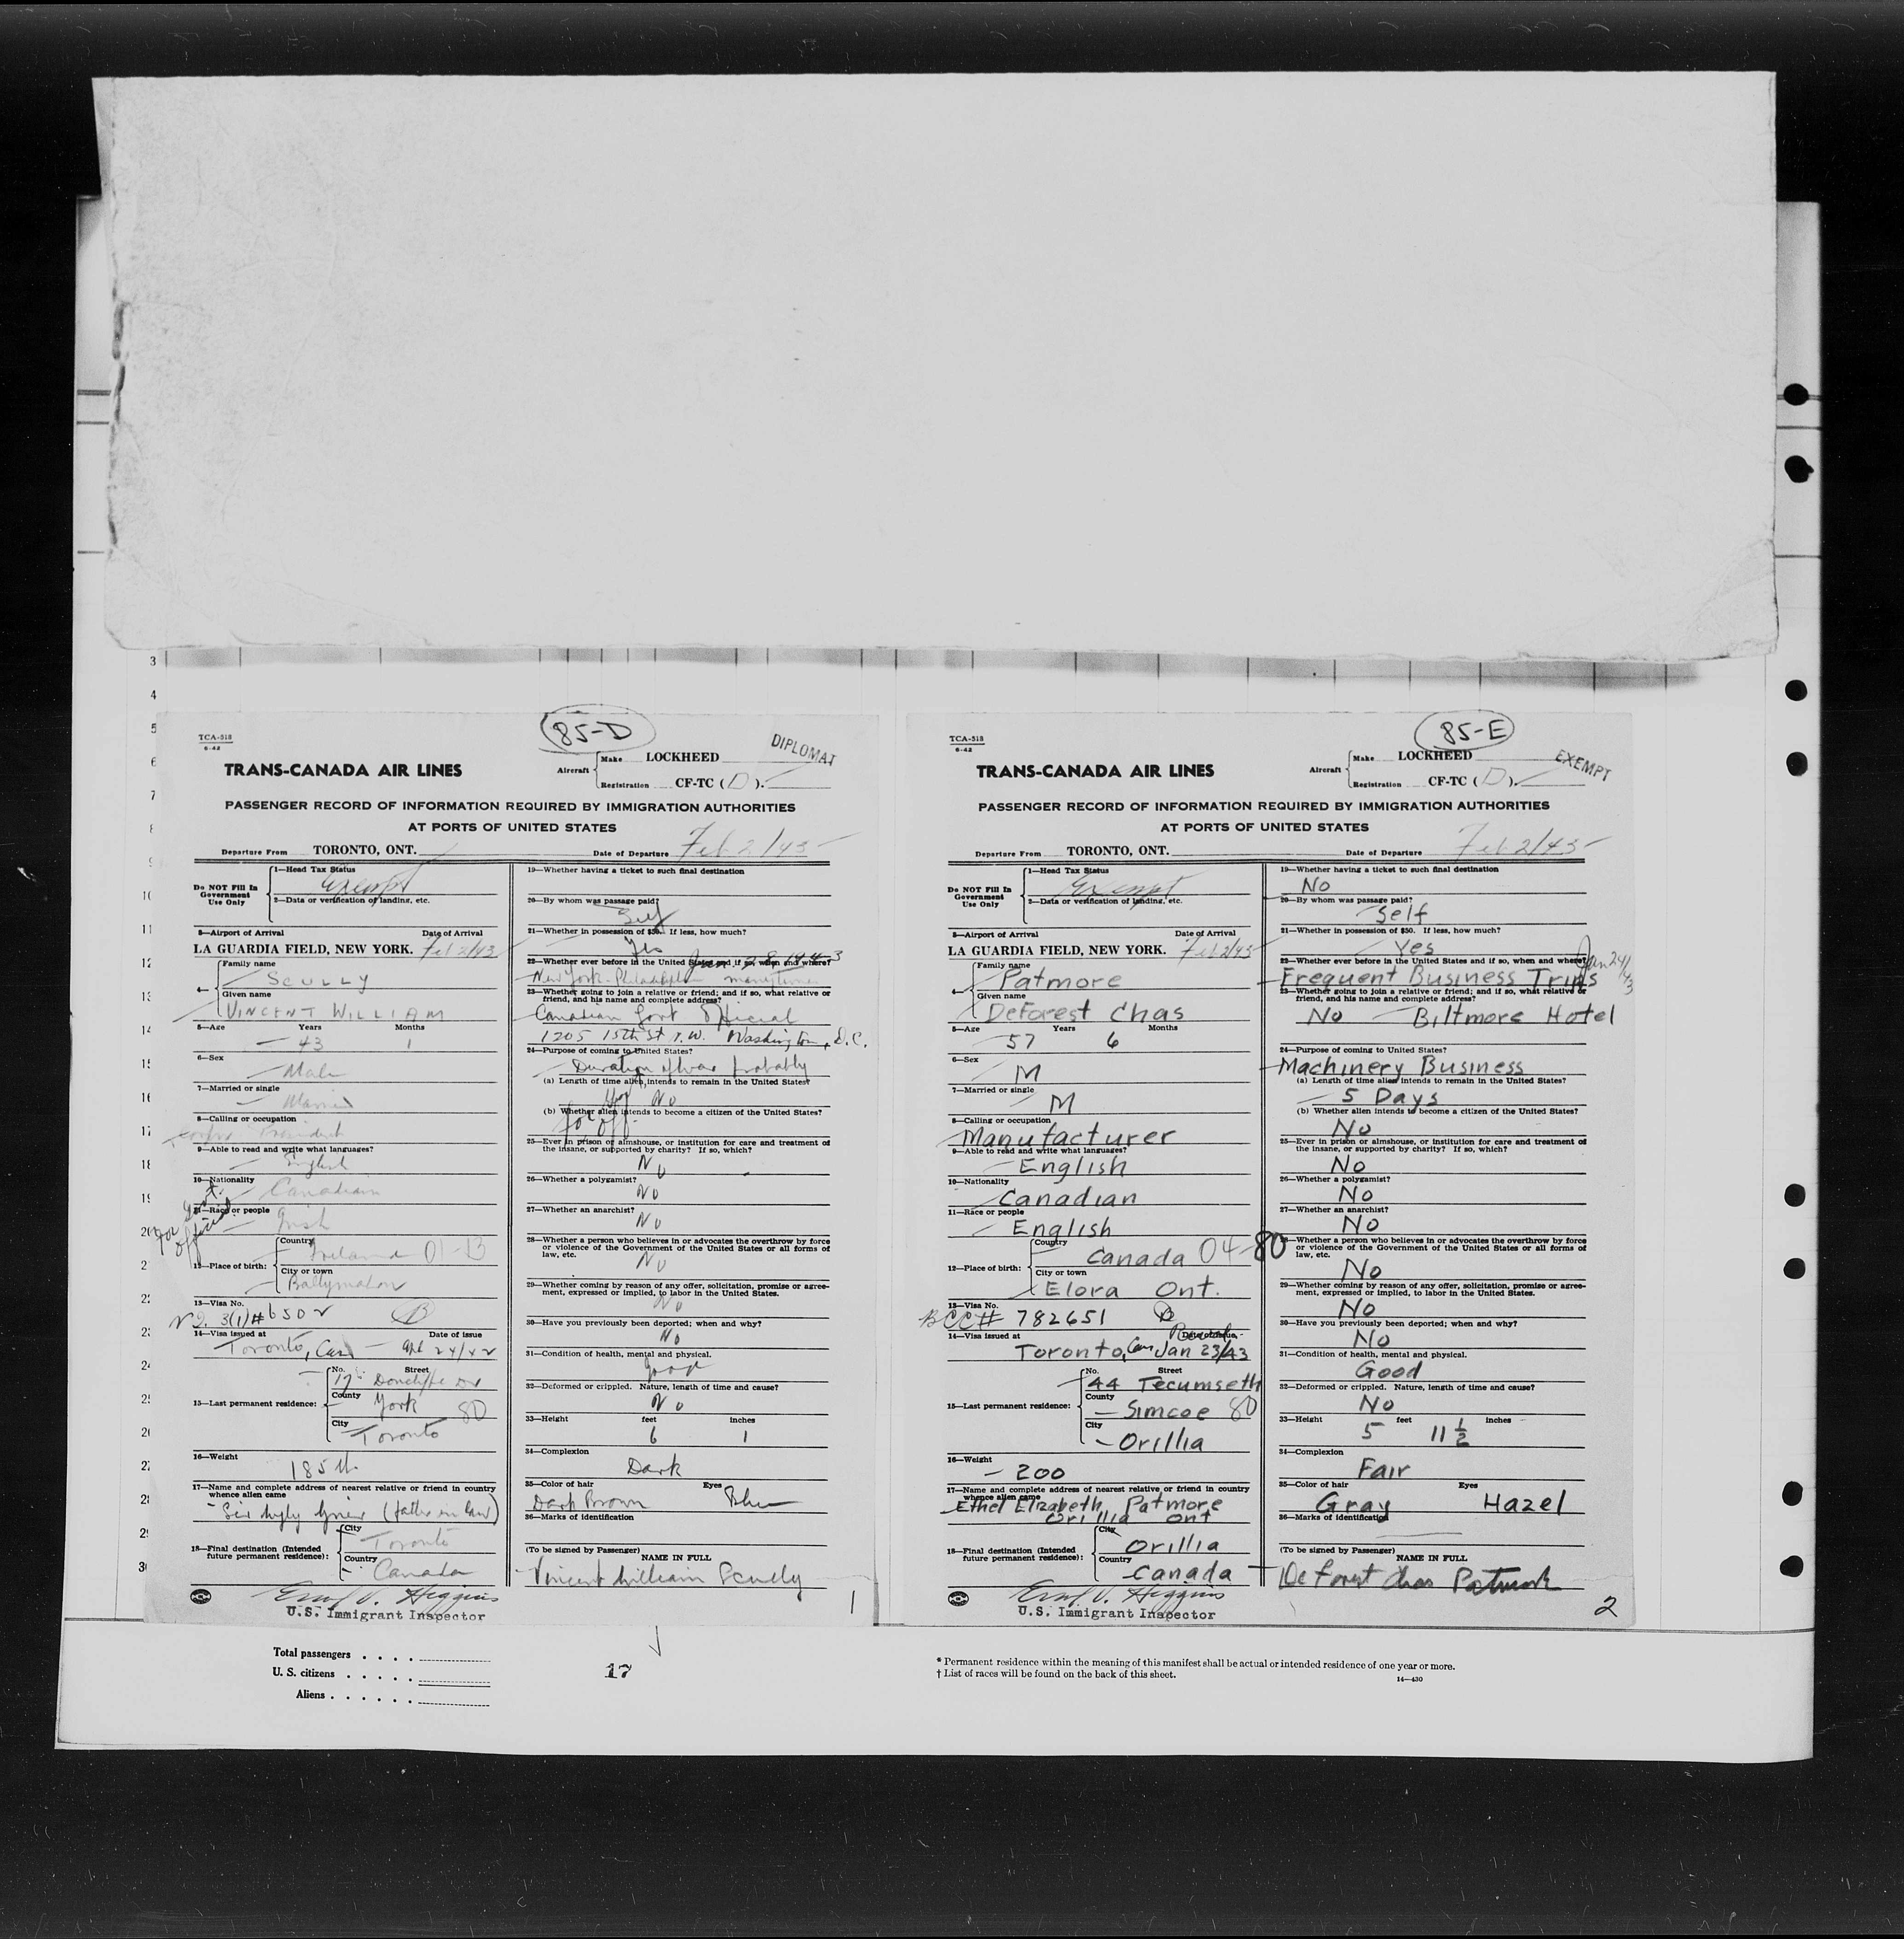 3
4
5
6
7
8
9
10
11
12
13
14
15
16
17
18
19
20
2
22
23
24
25
26
27
28
29
30
85-D
TCA-518
6-42
DIPLOMAT
Aircraft
Make LOCKHEED
Registration CF-TC ( D ).
TRANS-CANADA AIR LINES
PASSENGER RECORD OF INFORMATION REQUIRED BY IMMIGRATION AUTHORITIES
AT PORTS OF UNITED STATES
Departure From TORONTO, ONT. Date of Departure Feb 2/43
Do NOT Fill In Government Use Only
1—Head Tax Status
Exempt
2—Data or verification of landing, etc.
3—Airport of Arrival Date of Arrival
LA GUARDIA FIELD, NEW YORK. Feb 2/43
4—
Family name
SCULLY
Given name
VINCENT WILLIAM
5—Age Years Months
43 1
6—Sex
Male
7—Married or single
Married
8—Calling or occupation
President
9—Able to read and write what languages?
English
10—Nationality
Canadian
For Govt. Official
11—Race or people
Irish
12—Place of birth:
Country
Ireland 01-13
City or town
Ballymahon
13—Visa No.
3(1) # 6502
14—Visa issued at Date of issue
Toronto, Can — 24/42
15—Last permanent residence:
No. Street
17 Doncliffe Dr
County
York 80
City
Toronto
16—Weight
185 lb.
17—Name and complete address of nearest relative or friend in country
whence alien came
Sir Wyly Grier (father in law)
18—Final destination (Intended
future permanent residence):
City
Toronto
Country
Canada
V. Higgins
U.S. Immigrant Inspector
19—Whether having a ticket to such final destination
20—By whom was passage paid?
Self
21—Whether in possession of $50. If less, how much?
Yes
22—Whether ever before in the United States and if so, when and where?
Jan 28 1943
New York - Philadelphia many times
23—Whether going to join a relative or friend; and if so, what relative or
friend, and his name and complete address?
Canadian Govt Official
1205 15th St N.W. Washington, D.C.
24—Purpose of coming to United States?
Duration of war probably
(a) Length of time alien intends to remain in the United States?
No
(b) Whether alien intends to become a citizen of the United States?
25—Ever in prison or almshouse, or institution for care and treatment of
the insane, or supported by charity? If so, which?
No
26—Whether a polygamist?
No
27—Whether an anarchist?
No
28—Whether a person who believes in or advocates the overthrow by force
or violence of the Government of the United States or all forms of
law, etc.
No
29—Whether coming by reason of any offer, solicitation, promise or agree-
ment, expressed or implied, to labor in the United States.
No
30—Have you previously been deported; when and why?
No
31—Condition of health, mental and physical.
good
32—Deformed or crippled. Nature, length of time and cause?
No
33—Height feet inches
6 1
34—Complexion
Dark
35—Color of hair Eyes
Dark Brown Blue
36—Marks of identification
(To be signed by Passenger)
NAME IN FULL
Vincent William Scully
1
85-E
TCA-518
6-42
EXEMPT
Aircraft
Make LOCKHEED
Registration CF-TC ( D ).
TRANS-CANADA AIR LINES
PASSENGER RECORD OF INFORMATION REQUIRED BY IMMIGRATION AUTHORITIES
AT PORTS OF UNITED STATES
Departure From TORONTO, ONT. Date of Departure Feb 2/43
Do NOT Fill In Government Use Only
1—Head Tax Status
Exempt
2—Data or verification of landing, etc.
3—Airport of Arrival Date of Arrival
LA GUARDIA FIELD, NEW YORK. Feb 2/43
4—
Family name
Patmore
Given name
Deforest Chas
5—Age Years Months
57 6
6—Sex
M
7—Married or single
M
8—Calling or occupation
Manufacturer
9—Able to read and write what languages?
English
10—Nationality
Canadian
11—Race or people
English
12—Place of birth:
Country
Canada 04-80
City or town
Elora Ont.
13—Visa No.
BCC# 782651
14—Visa issued at Date of issue
Toronto, Can Jan 23/43
15—Last permanent residence:
No. Street
44 Tecumseth
County
Simcoe 80
City
Orillia
16—Weight
200
17—Name and complete address of nearest relative or friend in country
whence alien came
Ethel Elizabeth Patmore
Orillia Ont
18—Final destination (Intended
future permanent residence):
City
Orillia
Country
Canada
V. Higgins
U.S. Immigrant Inspector
19—Whether having a ticket to such final destination
No
20—By whom was passage paid?
Self
21—Whether in possession of $50. If less, how much?
Yes
22—Whether ever before in the United States and if so, when and where?
Jan 24/43
Frequent Business Trips
23—Whether going to join a relative or friend; and if so, what relative or
friend, and his name and complete address?
No — Biltmore Hotel
24—Purpose of coming to United States?
Machinery Business
(a) Length of time alien intends to remain in the United States?
5 Days
(b) Whether alien intends to become a citizen of the United States?
No
25—Ever in prison or almshouse, or institution for care and treatment of
the insane, or supported by charity? If so, which?
No
26—Whether a polygamist?
No
27—Whether an anarchist?
No
28—Whether a person who believes in or advocates the overthrow by force
or violence of the Government of the United States or all forms of
law, etc.
No
29—Whether coming by reason of any offer, solicitation, promise or agree-
ment, expressed or implied, to labor in the United States.
No
30—Have you previously been deported; when and why?
No
31—Condition of health, mental and physical.
Good
32—Deformed or crippled. Nature, length of time and cause?
No
33—Height feet inches
5 11 1/2
34—Complexion
Fair
35—Color of hair Eyes
Gray Hazel
36—Marks of identification
(To be signed by Passenger)
NAME IN FULL
Deforest Chas Patmore
2
Total passengers . . . .
U. S. citizens . . . . .
Aliens . . . . . .
17
* Permanent residence within the meaning of this manifest shall be actual or intended residence of one year or more.
† List of races will be found on the back of this sheet.
14—430